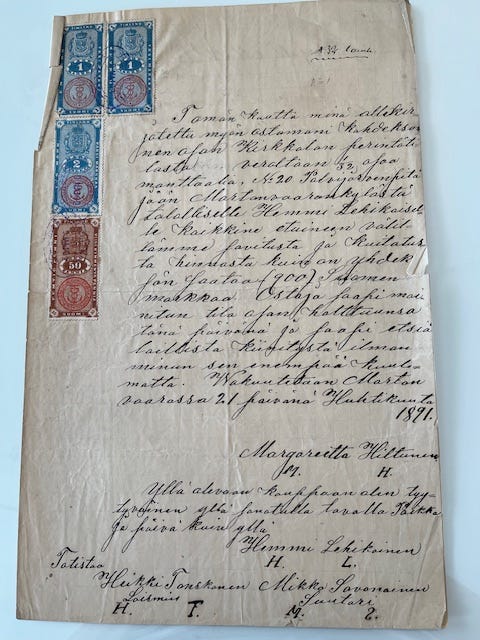 FINLAND FINLAND
1 1
SUOMI SUOMI
2
SUOMI
50
SUOMI
Tämän kautta minä allekir-
joitettu myön ostamani kahdeksan-
nen osan Kirkkalan perintöta-
lasta verollaan osaa
manttaalia, No 20 Palvijärven pitä-
jään Martonvaaran kylästä
talolliselle Hemmi Lehikoisel-
le kaikkine etuineen välit-
tämme sovitusta ja kuitatus-
ta hinnasta kuin on yhdek-
sän sataa (900) Suomen
markkaa. Ostaja saapi mai-
nitun tila osan haltuunsa
tänä päivänä ja saapi etsiä
laillista kiinitystä ilman
minun sen enempää kuule-
matta. Wakuutetaan Marton
vaarassa 21 päivänä Huhtikuuta
1891.
Margareetta Hiltunen
M. H.
Yllä olevaan kauppaan olen tyy-
tyväinen yllä sanotulla tavalla Paikka
ja päivä kuin yllä
Hemmi Lehikoinen
H. L.
Todistaa
Heikki Tanskanen Mikko Savonainen
H. T. M.